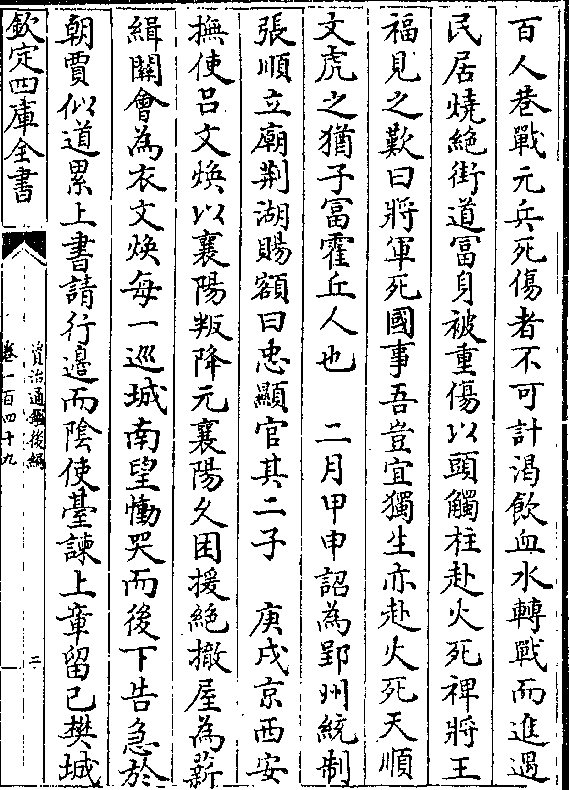 百人巷戰元兵死傷者不可計渴飲血水轉戰而進遇
民居燒絶街道冨身被重傷以頭觸柱赴火死裨將王
福見之歎曰將軍死國事吾豈宜獨生亦赴火死天順
文虎之猶子冨霍丘人也　二月甲申詔為郢州統制
張順立廟荆湖賜額曰忠顯官其二子　庚戌京西安
撫使吕文焕以襄陽叛降元襄陽久困援絶撤屋為薪
緝關㑹為衣文焕每一巡城南望慟哭而後下告急於
朝賈似道累上書請行邉而陰使臺諫上章留己樊城
欽定四庫全書
資治通鑑後編
卷一百四十九
二